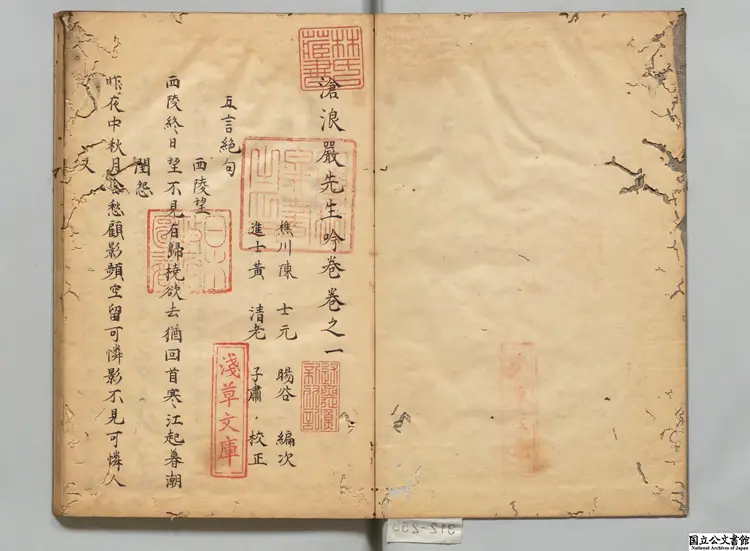 林氏藏書
滄浪嚴先生吟卷卷之一
樵川陳 士元 暘谷 編次
進士黃 清老 子肅 校正
淺草文庫
五言絶句
西陵望
西陵終日望不見有歸橈欲去猶回首寒江起暮潮
閨怨
昨夜中秋月含愁顧影頻空留可憐影不見可憐人
又
国立公文書館
National Archives of Japan